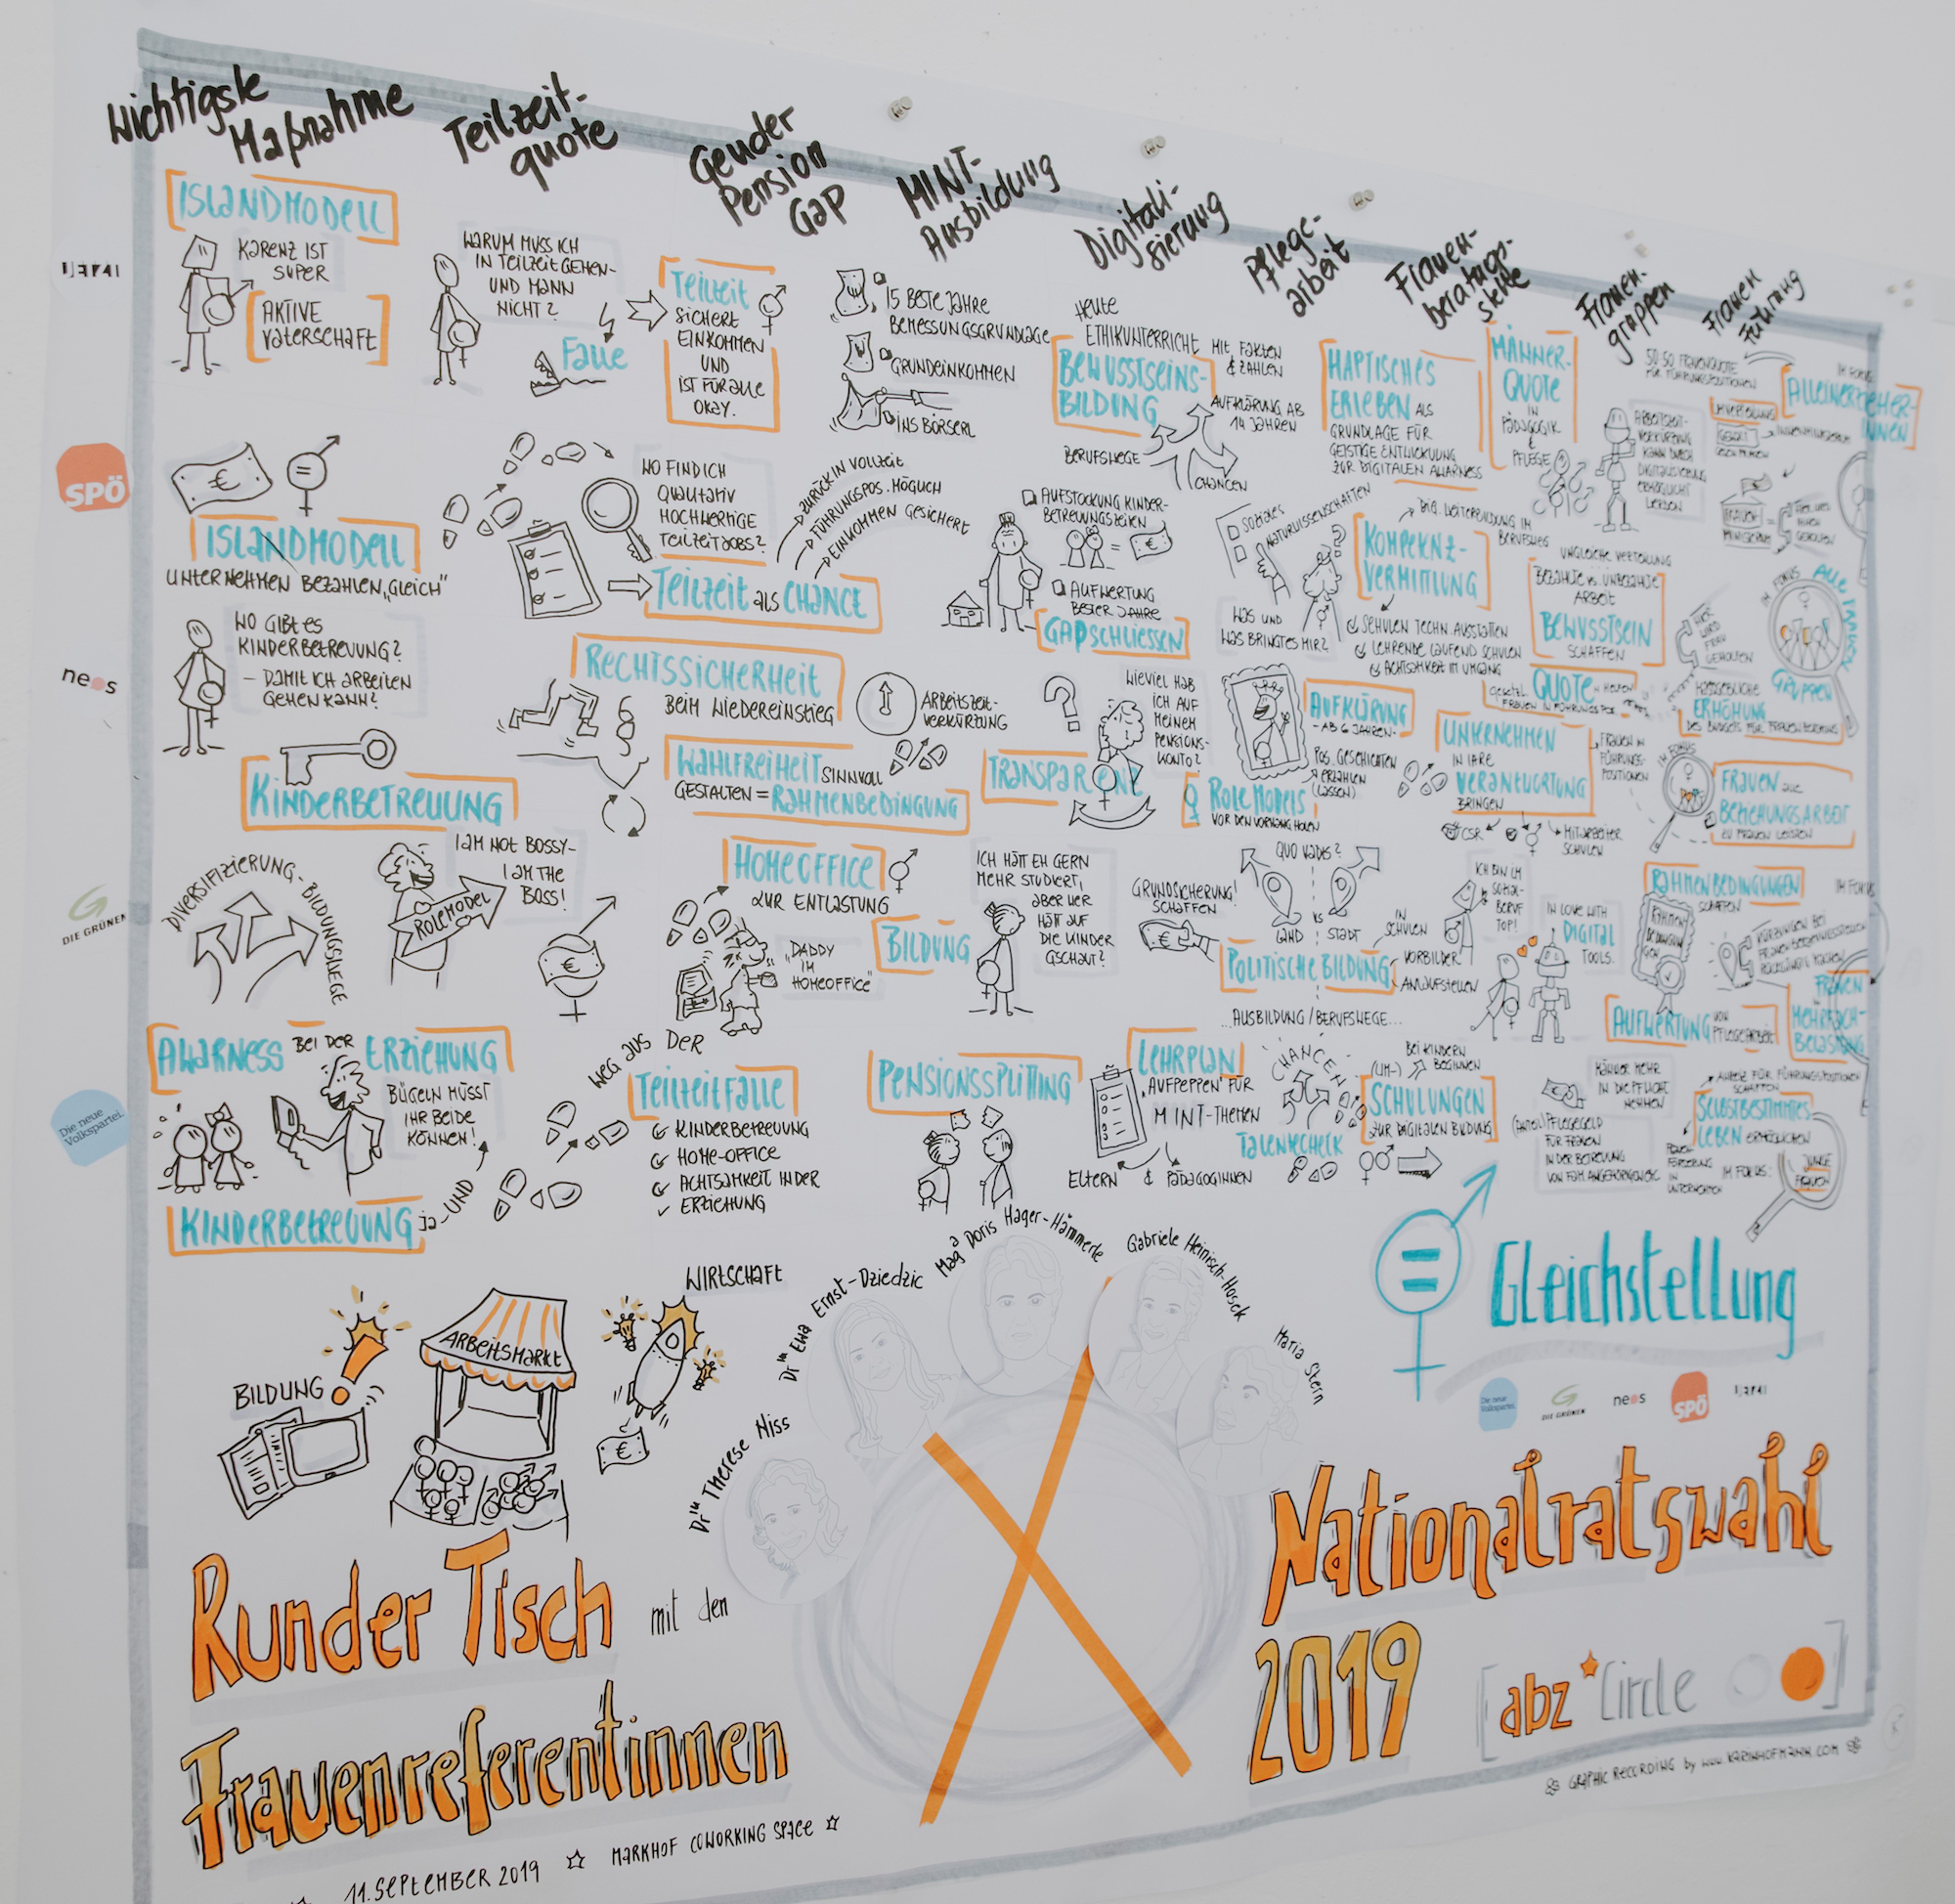 Wichtigste
Maßnahme
Teilzeit-
quote
Gender
Pension
Gap
MINT-
Ausbildung
Digitali-
sierung
Pflege-
arbeit
Frauen-
beratungs-
stelle
Frauen-
gruppen
Frauen
Führung
ISLANDMODELL
KARENZ IST
SUPER
AKTIVE
VATERSCHAFT
WARUM MUSS ICH
IN TEILZEIT GEHEN-
UND MANN
NICHT?
FALLE
TEILZEIT
SICHERT
EINKOMMEN
UND
IST FÜR ALLE
OKAY.
15 BESTE JAHRE
BEMESSUNGSGRUNDLAGE
GRUNDEINKOMMEN
INS BÖRSERL
HEUTE
ETHIKUNTERRICHT MIT FAKTEN
& ZAHLEN
BEWUSSTSEINS-
BILDUNG
AUFKLÄRUNG AB
14 JAHREN
BERUFSWEGE
CHANCEN
HAPTISCHES
ERLEBEN ALS
GRUNDLAGE FÜR
GEISTIGE ENTWICKLUNG
ZUR DIGITALEN AWARNESS
MÄNNER-
QUOTE
IN
PÄDAGOGIK
&
PFLEGE
50:50 FRAUENQUOTE
FÜR FÜHRUNGSPOSITIONEN
ARBEITSZEIT-
VERKÜRZUNG
KANN DURCH
DIGITALISIERUNG
ERMÖGLICHT
WERDEN
IM FOKUS
ALLEINERZIEHER-
INNEN
SPÖ
ISLANDMODELL
UNTERNEHMEN BEZAHLEN „GLEICH"
WO FIND ICH
QUALITATIV
HOCHWERTIGE
TEILZEITJOBS?
ZURÜCK IN VOLLZEIT
FÜHRUNGSPOS. MÖGLICH
EINKOMMEN GESICHERT
TEILZEIT ALS CHANCE
AUFSTOCKUNG KINDER-
BETREUUNGSZEITEN
AUFWERTUNG
BESTER JAHRE
GAP SCHLIESSEN
SOZIALES
NATURWISSENSCHAFTEN
WAS UND
WAS BRINGT ES MIR?
DIG. WEITERBILDUNG IM
BERUFSWEG
KOMPETENZ-
VERMITTLUNG
SCHULEN TECHN. AUSSTATTEN
LEHRENDE LAUFEND SCHULEN
ACHTSAMKEIT IM UMGANG
UNGLEICHE VERTEILUNG
BEZAHLTE VS. UNBEZAHLTE
ARBEIT
BEWUSSTSEIN
SCHAFFEN
IM FOKUS
ALLE FRAUEN
GRUPPEN
neos
WO GIBT ES
KINDERBETREUUNG?
– DAMIT ICH ARBEITEN
GEHEN KANN?
KINDERBETREUUNG
RECHTSSICHERHEIT
BEIM WIEDEREINSTIEG
ARBEITSZEIT-
VERKÜRZUNG
WAHLFREIHEIT SINNVOLL
GESTALTEN = RAHMENBEDINGUNG
WIEVIEL HAB
ICH AUF
MEINEM
PENSIONS-
KONTO?
TRANSPARENZ
AUFKLÄRUNG
- AB 6 JAHREN -
POS. GESCHICHTEN
ERZÄHLEN
(LASSEN)
ROLE MODELS
VOR DEN VORHANG HOLEN
QUOTE
FRAUEN IN FÜHRUNGSPOS.
UNTERNEHMEN
IN IHRE
VERANTWORTUNG
BRINGEN
CSR
MITARBEITER
SCHULEN
FRAUEN IN
FÜHRUNGS-
POSITIONEN
MASSGEBLICHE
ERHÖHUNG
DES BUDGETS FÜR FRAUENBERATUNG
IM FOKUS
FRAUEN DIE
BEZIEHUNGSARBEIT
ZU FRAUEN LEISTEN
DIE GRÜNEN
DIVERSIFIZIERUNG - BILDUNGSWEGE
I AM NOT BOSSY-
I AM THE
BOSS!
ROLEMODEL
AWARNESS BEI DER ERZIEHUNG
HOMEOFFICE
ZUR ENTLASTUNG
„DADDY
IM
HOMEOFFICE"
BILDUNG
ICH HÄTT EH GERN
MEHR STUDIERT,
ABER WER
HÄTT AUF
DIE KINDER
GSCHAUT?
GRUNDSICHERUNG!
SCHAFFEN
QUO VADIS?
LAND VS STADT
POLITISCHE BILDUNG
IN
SCHULEN
VORBILDER
ANLAUFSTELLEN
...AUSBILDUNG / BERUFSWEGE...
ICH BIN IM
SOZIAL-
BERUF
TOP!
IN LOVE WITH
DIGITAL
TOOLS.
RAHMENBEDINGUNGEN
SCHAFFEN
AUFWERTUNG VON
PFLEGEARBEIT
FRAUEN
MEHRFACH-
BELASTUNG
Die neue
Volkspartei.
BÜGELN MÜSST
IHR BEIDE
KÖNNEN!
KINDERBETREUUNG
ja - UND
WEG AUS DER
TEILZEITFALLE
KINDERBETREUUNG
HOME-OFFICE
ACHTSAMKEIT IN DER
ERZIEHUNG
PENSIONSSPLITTING
LEHRPLAN
„AUFPEPPEN" FÜR
MINT-THEMEN
ELTERN & PÄDAGOGINNEN
CHANCEN
TALENTECHECK
BEI KINDERN
BEGINNEN
(UM-)
SCHULUNGEN
ZUR DIGITALEN BILDUNG
MÄNNER MEHR
IN DIE PFLICHT
NEHMEN
PFLEGEGELD
FÜR FRAUEN
IN DER BETREUUNG
ANREIZ FÜR FÜHRUNGSPOSITIONEN
SCHAFFEN
SELBSTBESTIMMTES
LEBEN ERMÖGLICHEN
IM FOKUS:
JUNGE
FRAUEN
BILDUNG
ARBEITSMARKT
WIRTSCHAFT
Drin Therese Niss
Drin Ewa Ernst-Dziedzic
Maga Doris Hager-Hämmerle
Gabriele Heinisch-Hosek
Maria Stern
Gleichstellung
Die neue
Volkspartei.
DIE GRÜNEN
neos
SPÖ
Runder Tisch mit den
Frauenreferentinnen
Nationalratswahl
2019
[abz*Circle]
11. SEPTEMBER 2019 ☆ MARKHOF COWORKING SPACE ☆
GRAPHIC RECORDING by www.KARINHOFMANN.COM